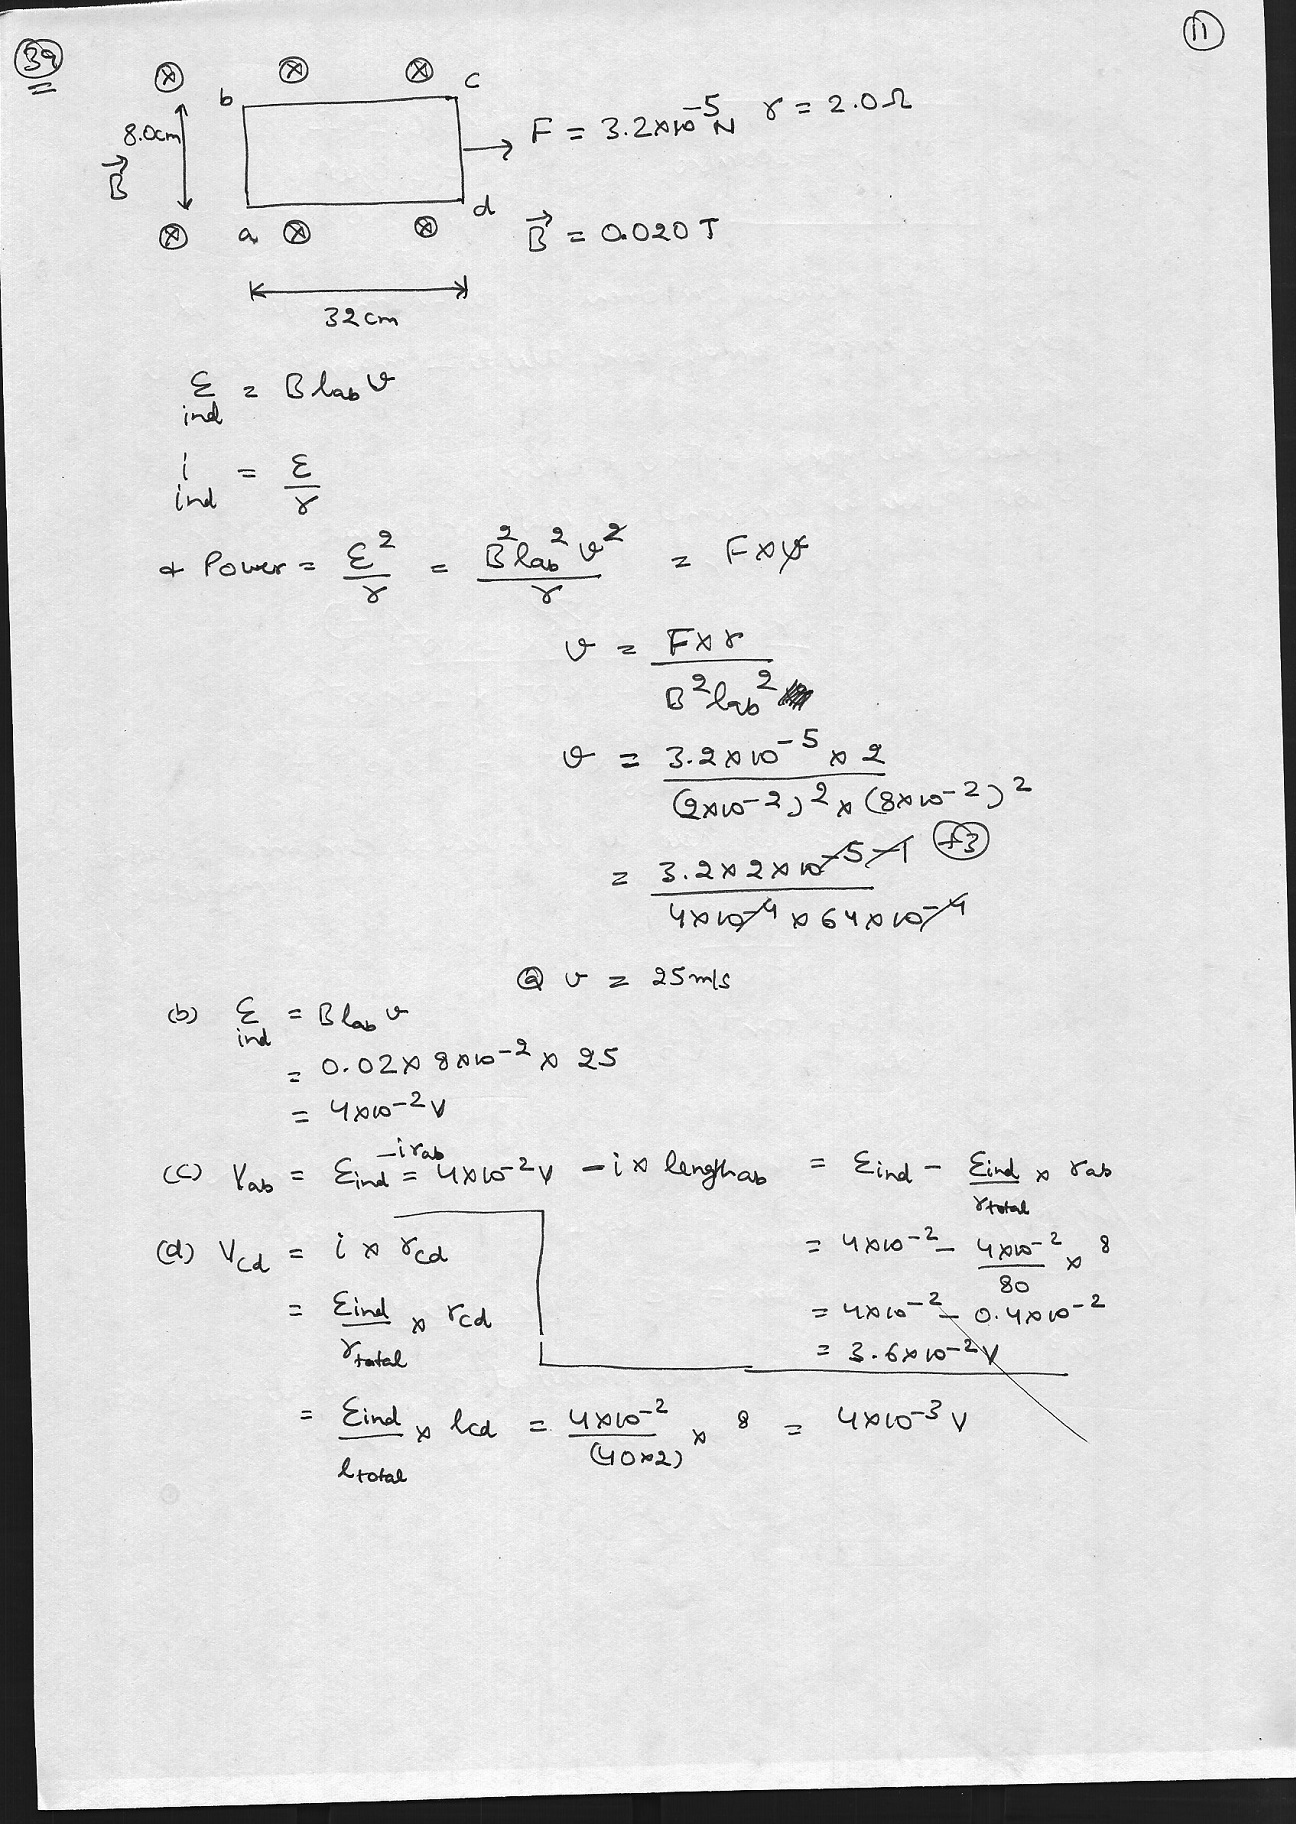 39
11
⊗ ⊗ ⊗
b c
8.0cm
B⃗
F = 3.2×10⁻⁵N r = 2.0Ω
a d
⊗ ⊗ ⊗
B⃗ = 0.020T
32cm
ℰind = B lab v
iind = ℰ/r
& Power = ℰ²/r = B²lab²v²/r = F×v
v = F×r / B²lab²
v = 3.2×10⁻⁵×2 / (2×10⁻²)²×(8×10⁻²)²
= 3.2×2×10⁻⁵⁻¹ +3 / 4×10⁻⁴×64×10⁻⁴
ⓐ v = 25m/s
(b) ℰind = B lab v
= 0.02×8×10⁻²×25
= 4×10⁻²V
(c) Vab = ℰind -irab = 4×10⁻²V - i × lengthab = ℰind - ℰind/rtotal × rab
= 4×10⁻² - 4×10⁻²/80 × 8
= 4×10⁻² - 0.4×10⁻²
= 3.6×10⁻²V
(d) Vcd = i × rcd
= ℰind/rtotal × rcd
= ℰind/ltotal × lcd = 4×10⁻²/(40×2) × 8 = 4×10⁻³V